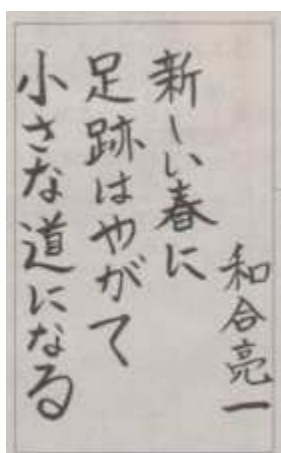 和合亮一
新しい春に
足跡はやがて
小さな道になる